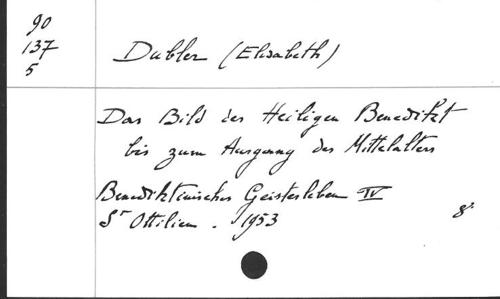 90
137
5
Dubler (Elisabeth)
Das Bild des Heiligen Benedikt
bis zum Ausgang des Mittelalters
Benediktinisches Geistesleben IV
St Ottilien . 1953
8°